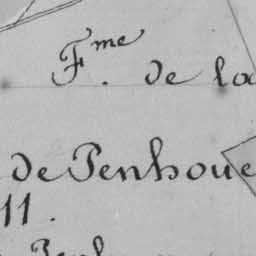 Fme. de la
de Penhoue
11.